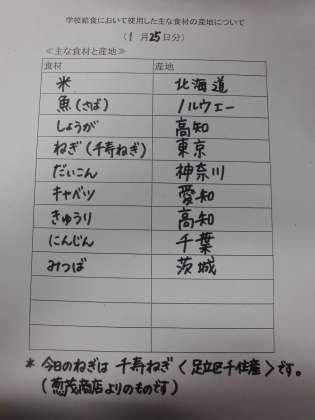 学校給食において使用した主な食材の産地について
（1月25日分）
≪主な食材と産地≫
食材 産地
米 北海道
魚（さば） ノルウェー
しょうが 高知
ねぎ（千寿ねぎ） 東京
だいこん 神奈川
キャベツ 愛知
きゅうり 高知
にんじん 千葉
みつば 茨城
* 今日のねぎは 千寿ねぎ〈足立区千住産〉です。
（葱茂商店よりのものです）